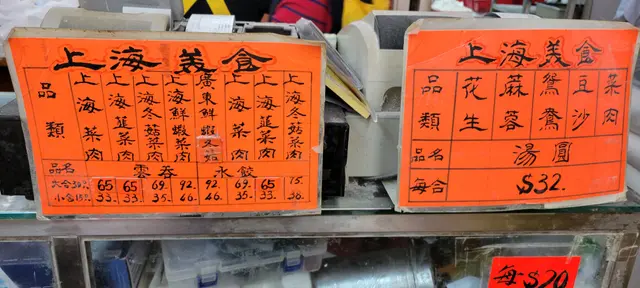 上海美食
品類
上海菜肉
上海韮菜肉
上海冬菇菜肉
上海鮮蝦菜肉
廣東鮮蝦
上海菜肉
上海韮菜肉
上海冬菇菜肉
品名 雲吞 水餃
大合30 65 65 69. 92. 92. 69. 65 75.
小合15 33. 33. 35. 46. 46. 35. 33. 38.
上海美食
品類
花生
蔴蓉
鴛鴦
豆沙
菜肉
品名 湯圓
每合 $32.
每 $20